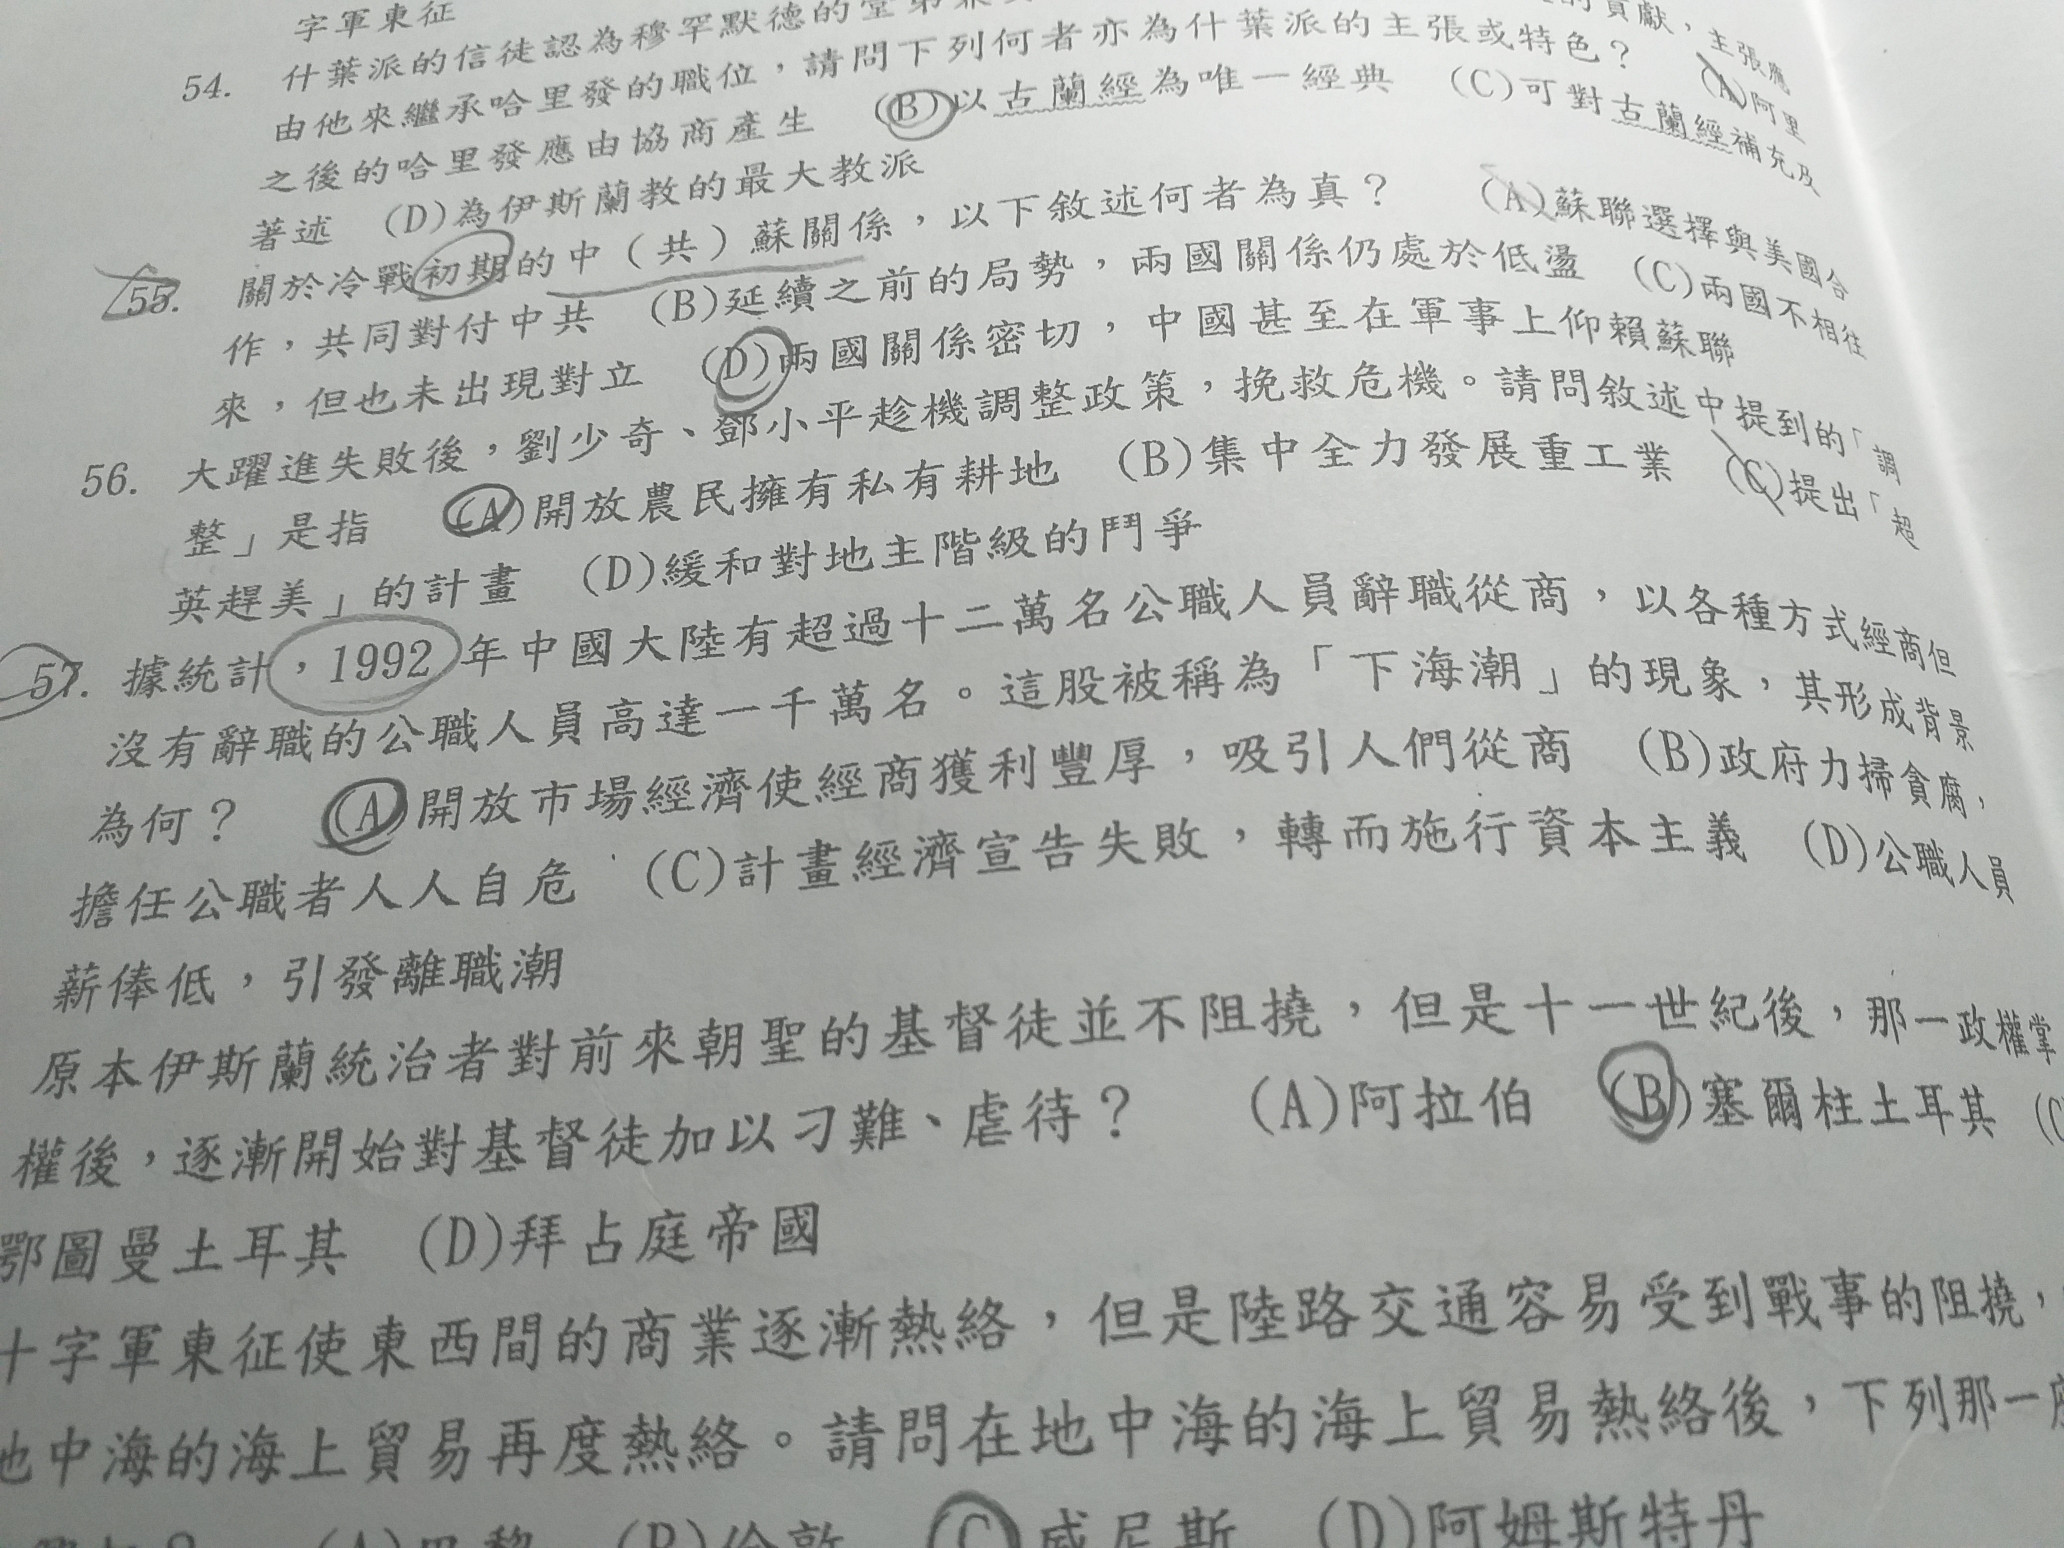 字軍東征
54. 什葉派的信徒認為穆罕默德的堂弟 的貢獻，主張應
由他來繼承哈里發的職位，請問下列何者亦為什葉派的主張或特色？ (A)阿里
之後的哈里發應由協商產生 (B)以古蘭經為唯一經典 (C)可對古蘭經補充及
著述 (D)為伊斯蘭教的最大教派
55. 關於冷戰初期的中（共）蘇關係，以下敘述何者為真？ (A)蘇聯選擇與美國合
作，共同對付中共 (B)延續之前的局勢，兩國關係仍處於低盪 (C)兩國不相往
來，但也未出現對立 (D)兩國關係密切，中國甚至在軍事上仰賴蘇聯
56. 大躍進失敗後，劉少奇、鄧小平趁機調整政策，挽救危機。請問敘述中提到的「調
整」是指 (A)開放農民擁有私有耕地 (B)集中全力發展重工業 (C)提出「超
英趕美」的計畫 (D)緩和對地主階級的鬥爭
57. 據統計，1992年中國大陸有超過十二萬名公職人員辭職從商，以各種方式經商但
沒有辭職的公職人員高達一千萬名。這股被稱為「下海潮」的現象，其形成背景
為何？ (A)開放市場經濟使經商獲利豐厚，吸引人們從商 (B)政府力掃貪腐，
擔任公職者人人自危 (C)計畫經濟宣告失敗，轉而施行資本主義 (D)公職人員
薪俸低，引發離職潮
原本伊斯蘭統治者對前來朝聖的基督徒並不阻撓，但是十一世紀後，那一政權掌
權後，逐漸開始對基督徒加以刁難、虐待？ (A)阿拉伯 (B)塞爾柱土耳其 (C
鄂圖曼土耳其 (D)拜占庭帝國
十字軍東征使東西間的商業逐漸熱絡，但是陸路交通容易受到戰事的阻撓，
地中海的海上貿易再度熱絡。請問在地中海的海上貿易熱絡後，下列那一
(A)巴黎 (B)倫敦 (C)威尼斯 (D)阿姆斯特丹